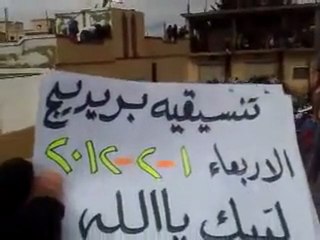 تنسيقيه بريديج
الاربعاء ١-٢-٢٠١٢
لبيك ياالله